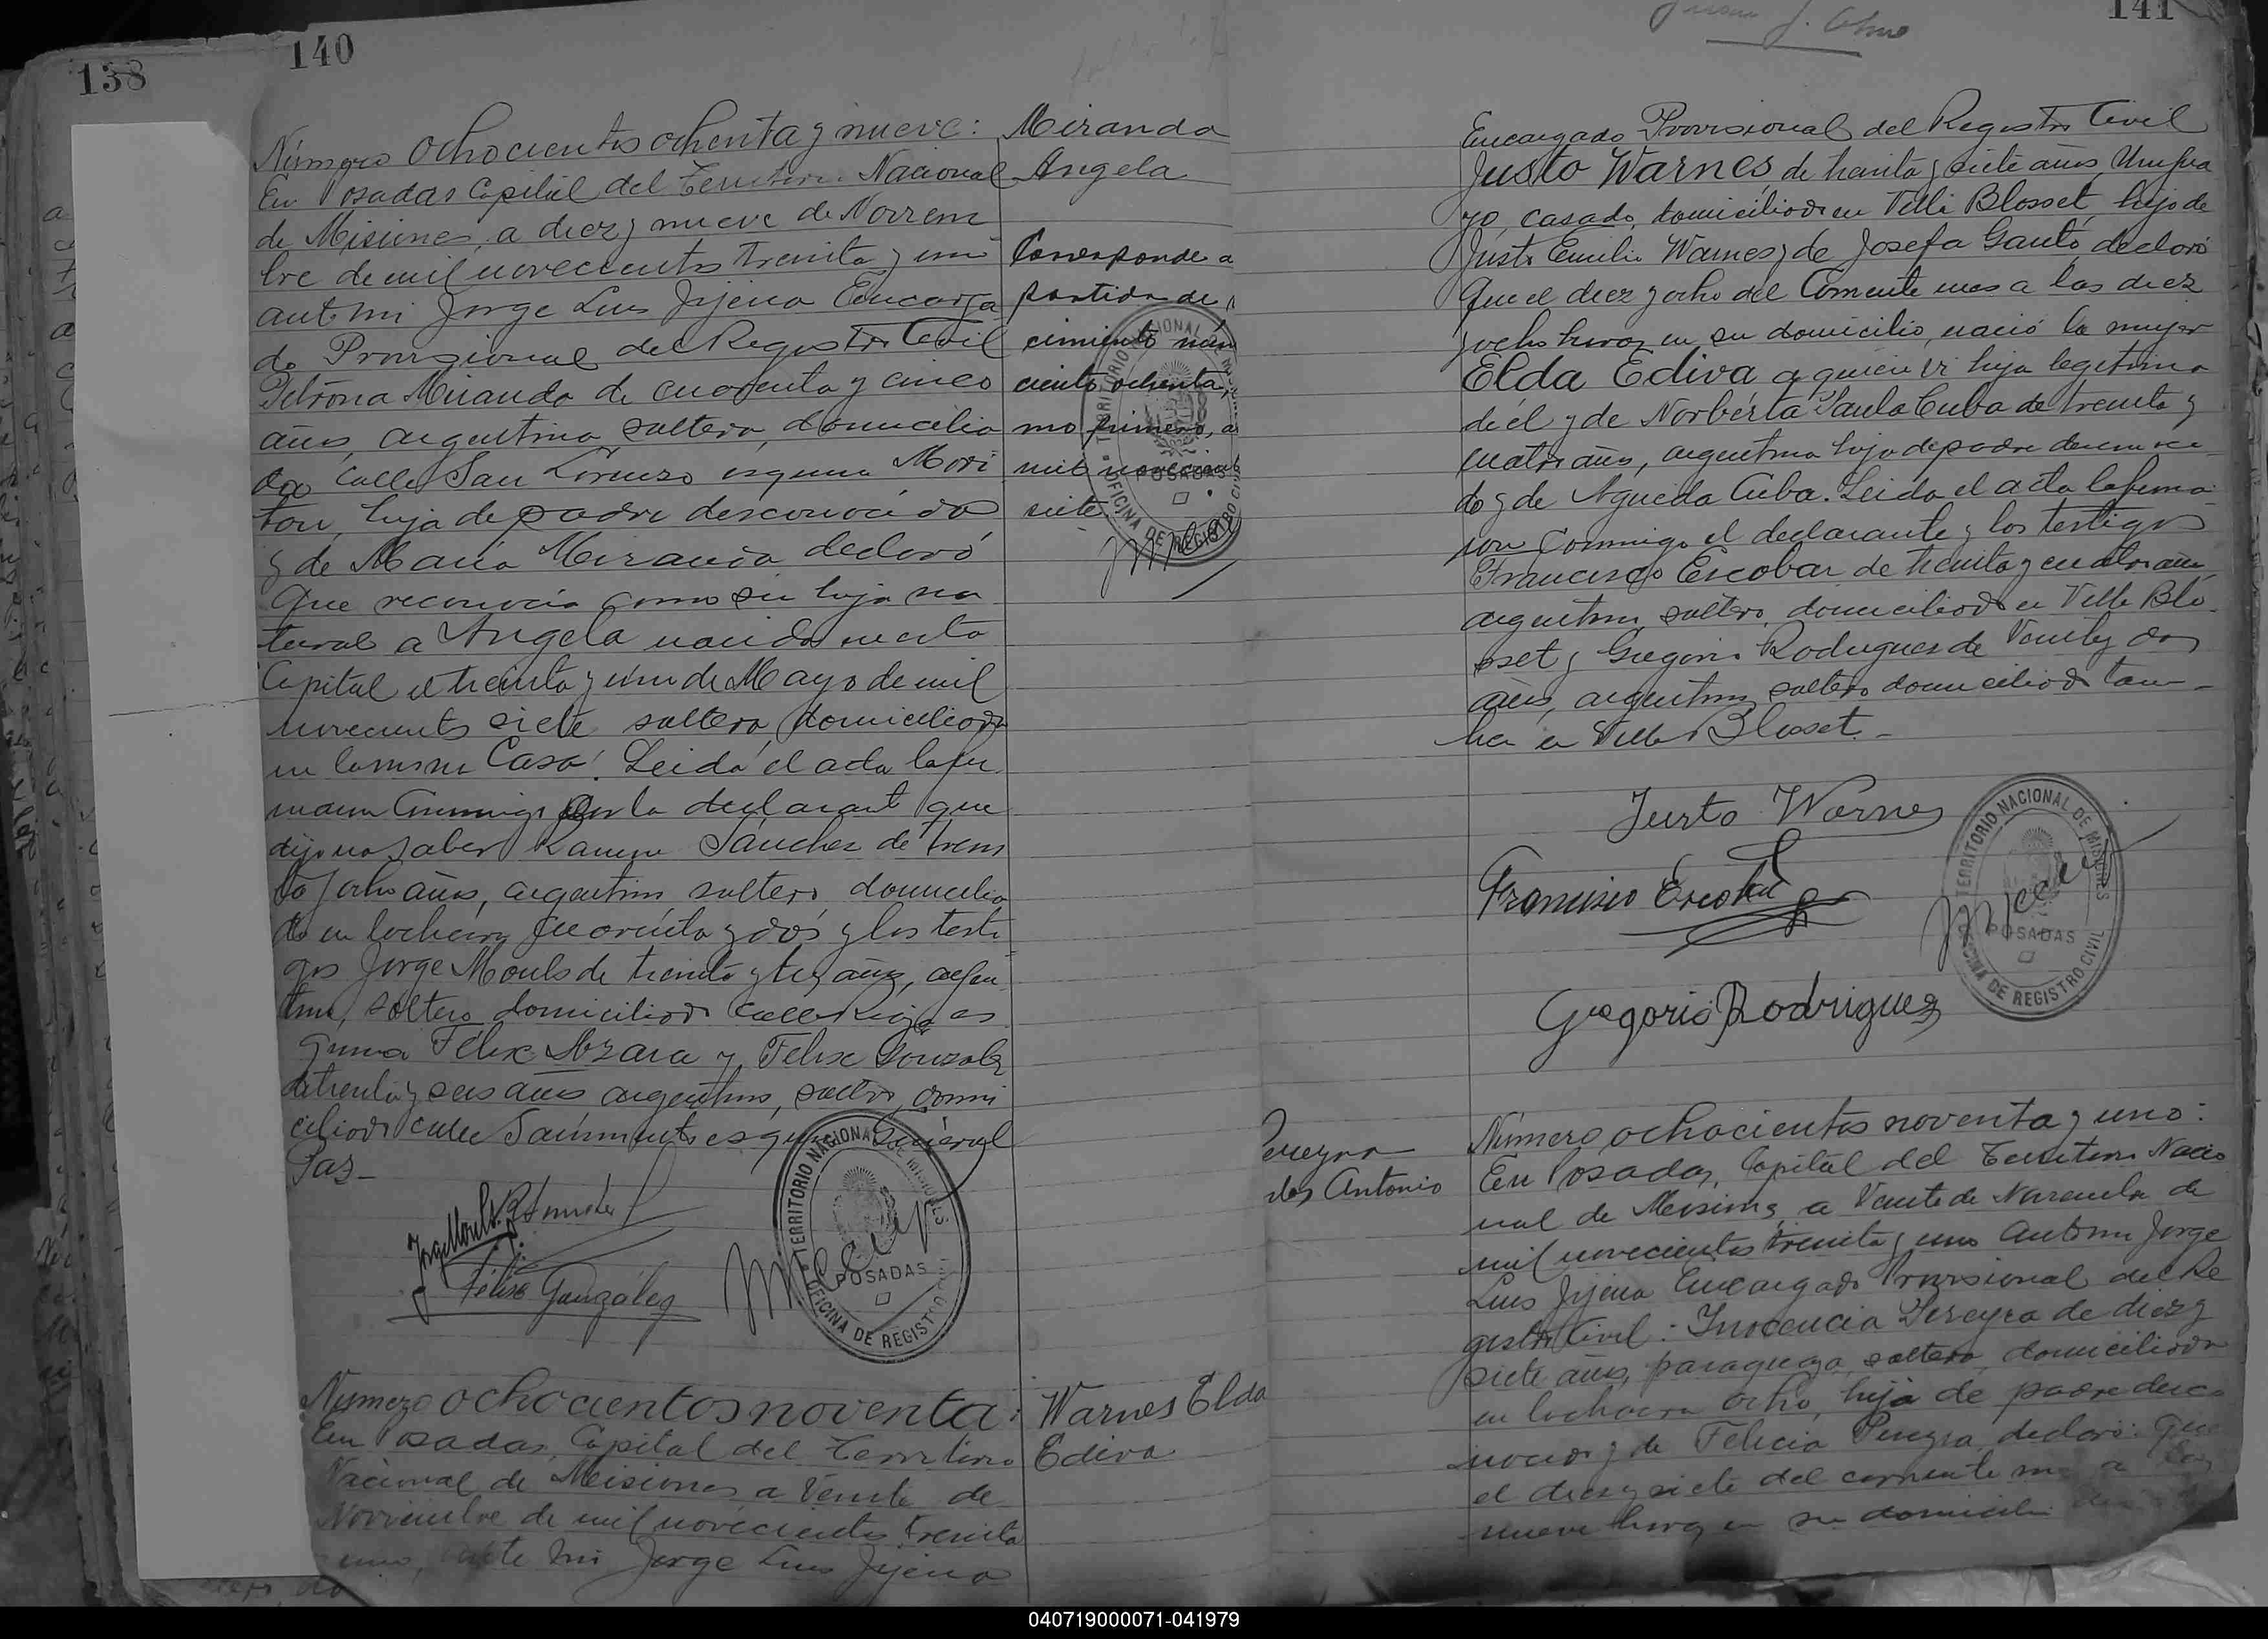 138
140
Número ochocientos ochenta y nueve:
En Posadas Capital del Territorio Nacional
de Misiones, a diez y nueve de Noviem
bre de mil novecientos treinta y uno
ante mi Jorge Luis Jijena Encarga
do Provisional del Registro Civil
Petrona Miranda de cuarenta y cinco
años, argentina, soltera, domicilia
da Calle San Lorenzo esquina Mori
ton, hija de padre desconocido
y de María Miranda declaró
Que reconocia como su hija na
tural a Angela nacida en esta
Capital el treinta y uno de Mayo de mil
novecientos siete soltera, domiciliada
en la misma Casa. Leida el acta la fir
maron conmigo por la declarante que
dijo no saber Ramon Sánchez de trein
ta y ocho años, argentino, soltero, domicilia
do en la chacra cuarenta y dos y los testi
gos Jorge Mouls de treinta y tres años, argen
tino, soltero domiciliado calle Rioja es
quina Félix Azara y Felix Gonzalez
de treinta y seis años argentino, soltero, domi
ciliado calle Sarmiento esquina General
Paz_
Miranda
Angela
Corresponde a
partida de
cimiento núm
ciento ochenta,
mo primero, a
mil novecient
siete.
TERRITORIO NACIONAL DE MISIONES
POSADAS
OFICINA DE REGISTRO CIVIL
Jorge Mouls
Félix González
TERRITORIO NACIONAL DE MISIONES
POSADAS
OFICINA DE REGISTRO CIVIL
Número ochocientos noventa:
En Posadas, Capital del Territorio
Nacional de Misiones a Veinte de
Noviembre de mil novecientos treinta
uno, ante mi Jorge Luis Jijena
Warnes Elda
Ediva
141
Encargado Provisional del Registro Civil
Justo Warnes de treinta y siete años, Urugua
yo, casado, domiciliado en Villa Blosset, hijo de
Justo Emilio Warnes y de Josefa Gautó, declaró
Que el diez y ocho del Corriente mes a las diez
y ocho horas en su domicilio, nació la mujer
Elda Ediva a quien es hija legitima
de él y de Norberta Paula Cuba de treinta y
cuatro años, argentina hija de padre desconoci
do y de Agueda Cuba. Leida el acta la firma
ron conmigo el declarante y los testigos
Francisco Escobar de treinta y cuatro años
argentino, soltero, domiciliado en Villa Blo
sset y Gregorio Rodriguez de Veinte y dos
años, argentino, soltero domiciliado tam
bien en Villa Blosset._
Justo Warnes
Francisco Escobar
Gregorio Rodriguez
TERRITORIO NACIONAL DE MISIONES
POSADAS
OFICINA DE REGISTRO CIVIL
ereyra
Antonio
Número ochocientos noventa y uno:
En Posadas, Capital del Territorio Nacio
nal de Misiones, a Veinte de Noviembre de
mil novecientos treinta y uno ante mi Jorge
Luis Jijena Encargado Provisional del Re
gistro Civil: Inocencia Pereyra de diez y
siete años, paraguaya, soltera, domiciliada
en la chacra ocho, hija de padre desco
nocido y de Felicia Pereyra, declaró: Que
el diez y siete del corriente mes a las
nueve horas en su domicilio
040719000071-041979